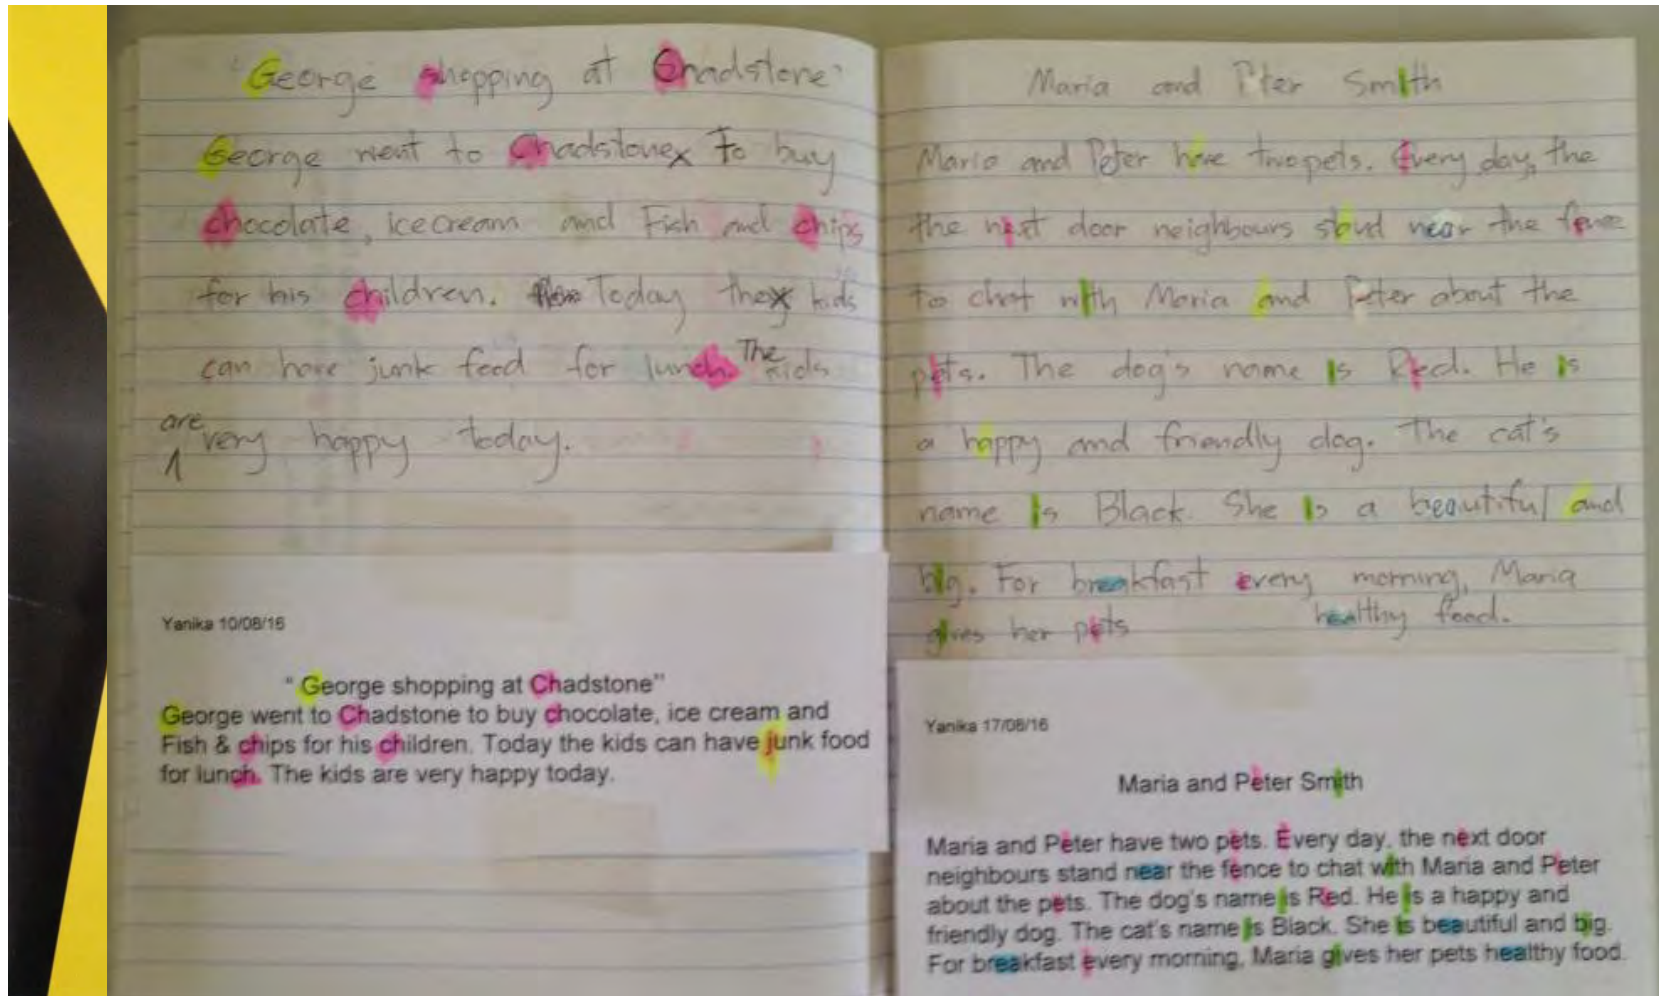 "George shopping at Chadstone"
George went to Chadstonex To buy
chocolate, icecream and Fish and chips
for his children. Today they kids
can have junk food for lunch. The kids
are
very happy today.
Yanika 10/08/16
" George shopping at Chadstone"
George went to Chadstone to buy chocolate, ice cream and
Fish & chips for his children. Today the kids can have junk food
for lunch. The kids are very happy today.
Maria and Pter Smith
Maria and Peter have two pets. Every day, the
the next door neighbours stand near the fence
to chat with Maria and Peter about the
pets. The dog's name is Red. He is
a happy and friendly dog. The cat's
name is Black. She is a beautiful and
big. For breakfast every morning, Maria
gives her pets healthy food.
Yanika 17/08/16
Maria and Peter Smith
Maria and Peter have two pets. Every day, the next door
neighbours stand near the fence to chat with Maria and Peter
about the pets. The dog's name is Red. He is a happy and
friendly dog. The cat's name is Black. She is beautiful and big.
For breakfast every morning, Maria gives her pets healthy food.